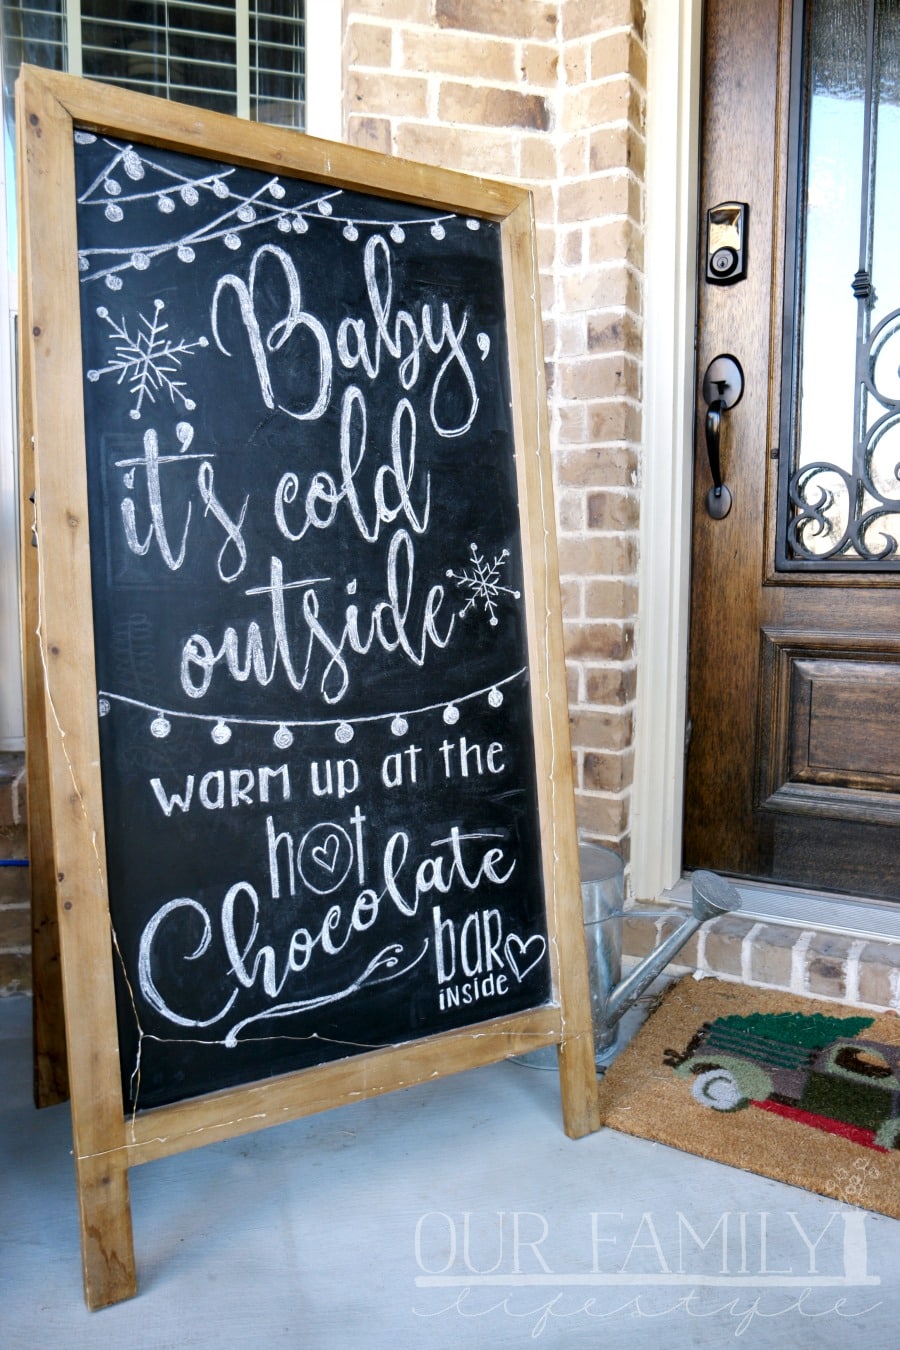 Baby,
it's cold
outside
warm up at the
hot
Chocolate
bar
inside
OUR FAMILY
lifestyle